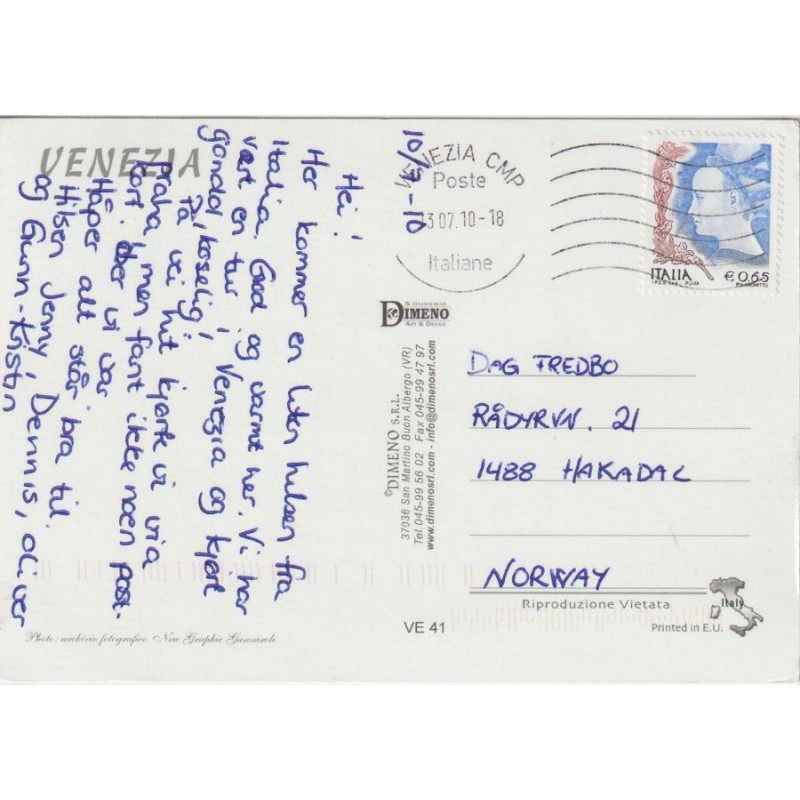 VENEZIA
10/7-10
Hei!
Her kommer en liten hilsen fra
Italia. God og varmt her. Vi har
vært en tur i Venezia og kjørt
gondol, koselig!
På vei hit kjørte vi via
Praha, men fant ikke noen post-
kort der vi var.
Håper alt står bra til.
Hilsen Jenny, Dennis, Oliver
og Gunn-Kristin
Photo: archivio fotografico New Graphic
VENEZIA CMP
Poste
13 07.10-18
Italiane
ITALIA
€0,65
I.P.Z.S. - ROMA
SOUVENIR
DIMENO
ART & DESIGN
©DIMENO S.R.L.
37036 San Martino Buon Albergo (VR)
Tel.045-99 56 02 - Fax 045-99 47 97
www.dimenosrl.com - info@dimenosrl.com
DAG FREDBO
RÅDYRVN. 21
1488 HAKADAL
NORWAY
Riproduzione Vietata
Italy
VE 41
Printed in E.U.